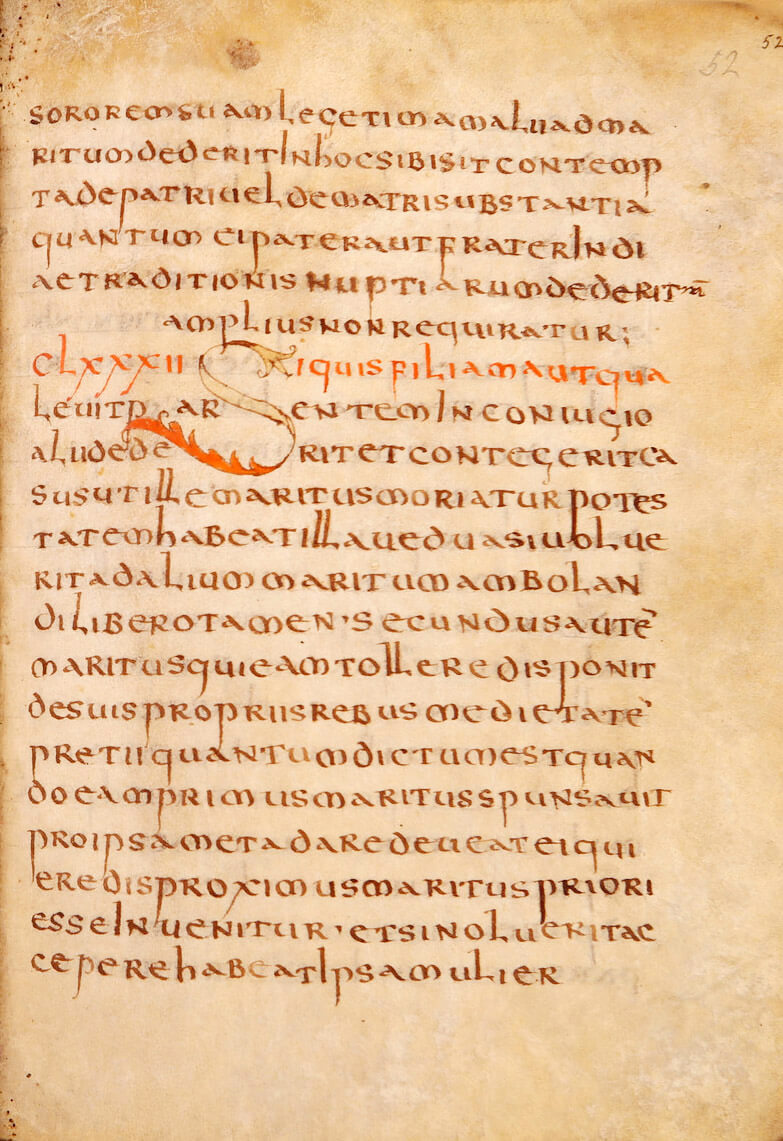 52
52
sororemsuamlegetimamaluadma
ritumdederitinhocsibisitcontemp
tadepatriueldematrisubstantia
quantum eipaterautfraterindi
aetraditionis nuptiarumdederit &
ampliusnonrequiratur;
clxxxii Siquisfiliamautqua
leuitpar entemin coniugio
aliidede ritetcontegeritca
susutillemaritusmoriaturpotes
tatemhabeatillaueduasiuolue
ritadaliummaritumambolan
diliberotamen·secundusautē
maritusquieamtolleredisponit
desuispropriisrebusmedietatē
pretiiquantumdictumestquan
doeamprimusmaritusspunsauit
proipsametadaredeueateiqui
eredisproximusmaritus priori
esseinuenitur·etsinolueritac
ceperehabeatipsamulier